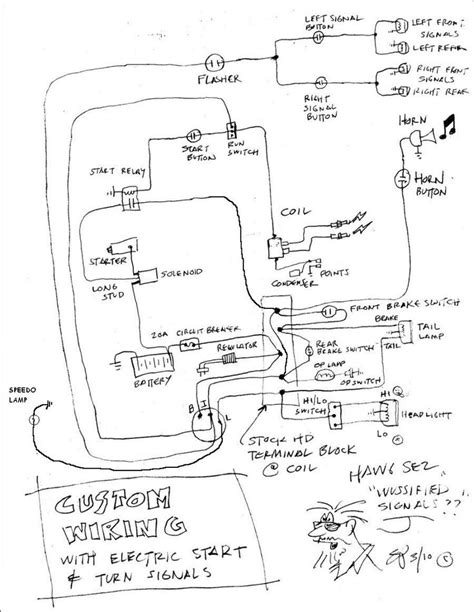 LEFT SIGNAL
BUTTON
LEFT FRONT
SIGNALS
LEFT REAR
FLASHER
RIGHT FRONT
SIGNALS
RIGHT REAR
RIGHT
SIGNAL
BUTTON
HORN
START
BUTTON
RUN
SWITCH
START RELAY
HORN
BUTTON
COIL
STARTER
SOLENOID
LONG
STUD
POINTS
CONDENSER
FRONT BRAKE SWITCH
BRAKE
20A CIRCUIT BREAKER
TAIL
LAMP
REAR
BRAKE SWITCH
TAIL
REGULATOR
OP LAMP
OP SWITCH
BATTERY
SPEEDO
LAMP
B I L
HI/LO
SWITCH
HI
HEADLIGHT
LO
STOCK HD
TERMINAL BLOCK
@ COIL
CUSTOM
WIRING
WITH ELECTRIC START
& TURN SIGNALS
HAWG SEZ
"WUSSIFIED
SIGNALS??
3/10 ©